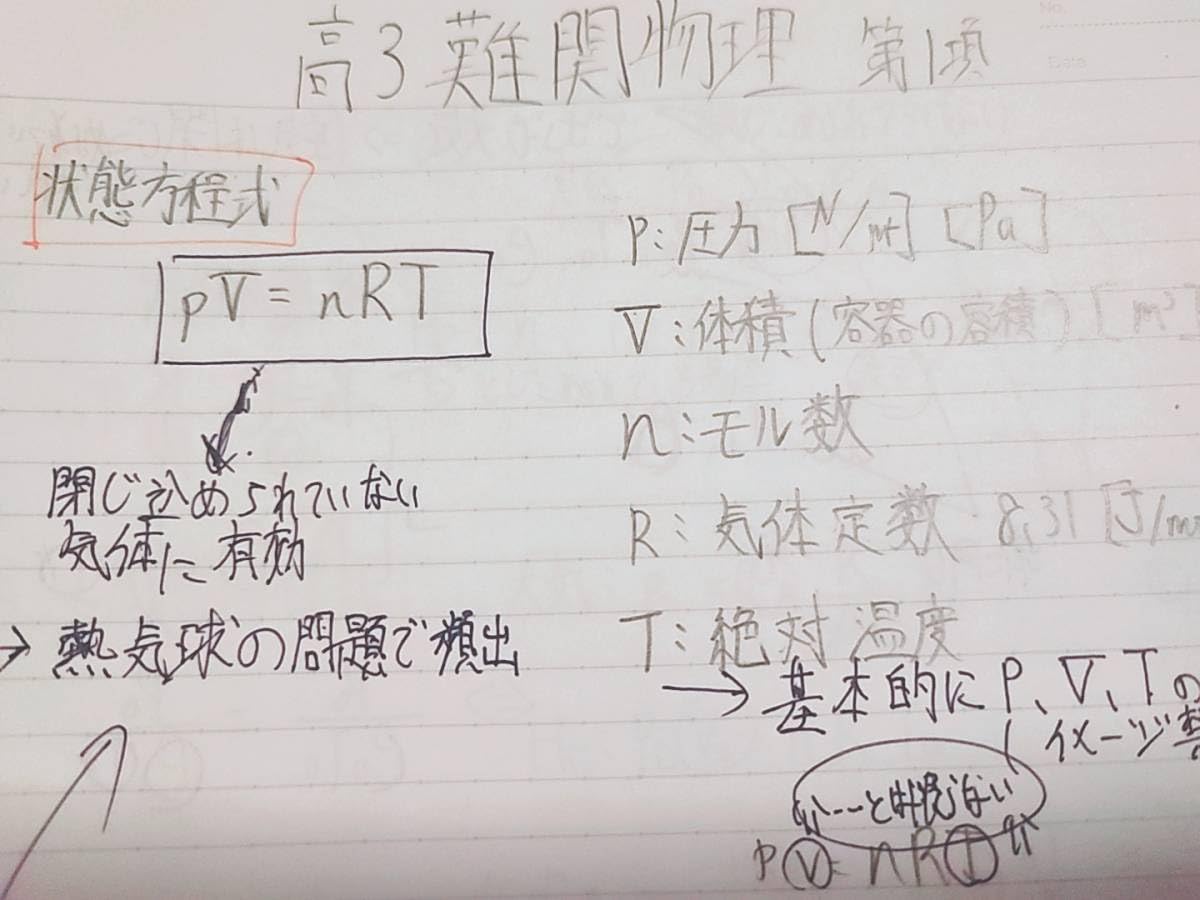 高3難関物理 第1項
状態方程式
pV = nRT
閉じ込められていない
気体に有効
→ 熱気球の問題で頻出
P:圧力 [N/m²] [Pa]
V:体積(容器の容積) [m³]
n:モル数
R:気体定数 8.31 [J/m
T:絶対温度
→ 基本的に P、V、Tの
イメージ
PV=nRT